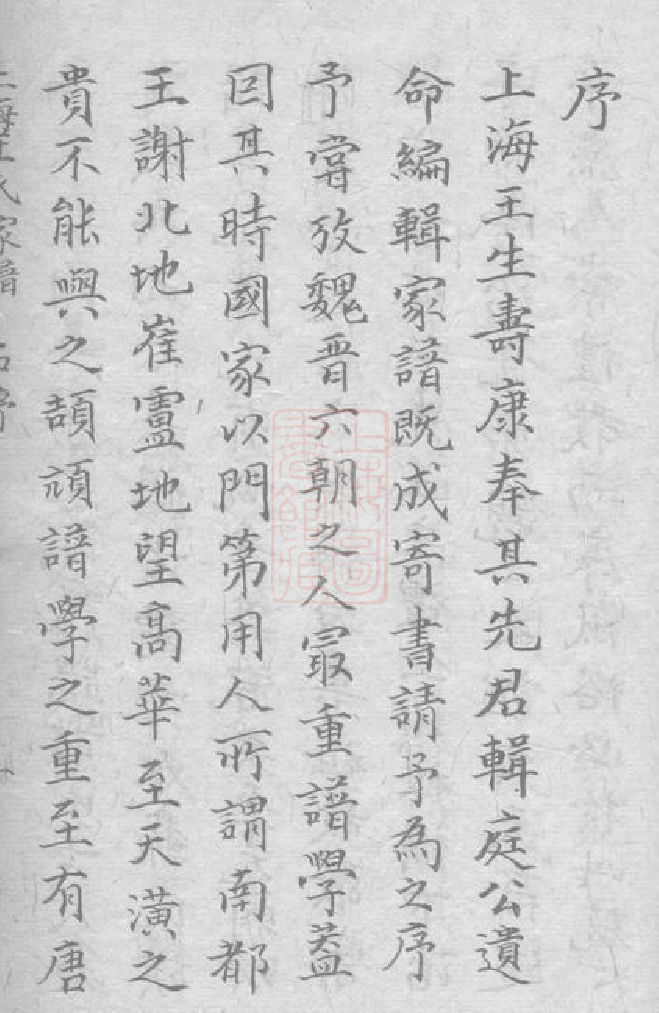 序
上海王生壽康奉其先君輯庭公遺
命編輯家譜既成寄書請予為之序
予嘗攷魏晉六朝之人冣重譜學蓋
因其時國家以門第用人所謂南都
王謝北地崔盧地望高華至天潢之
貴不能與之頡頏譜學之重至有唐
上海王氏家譜